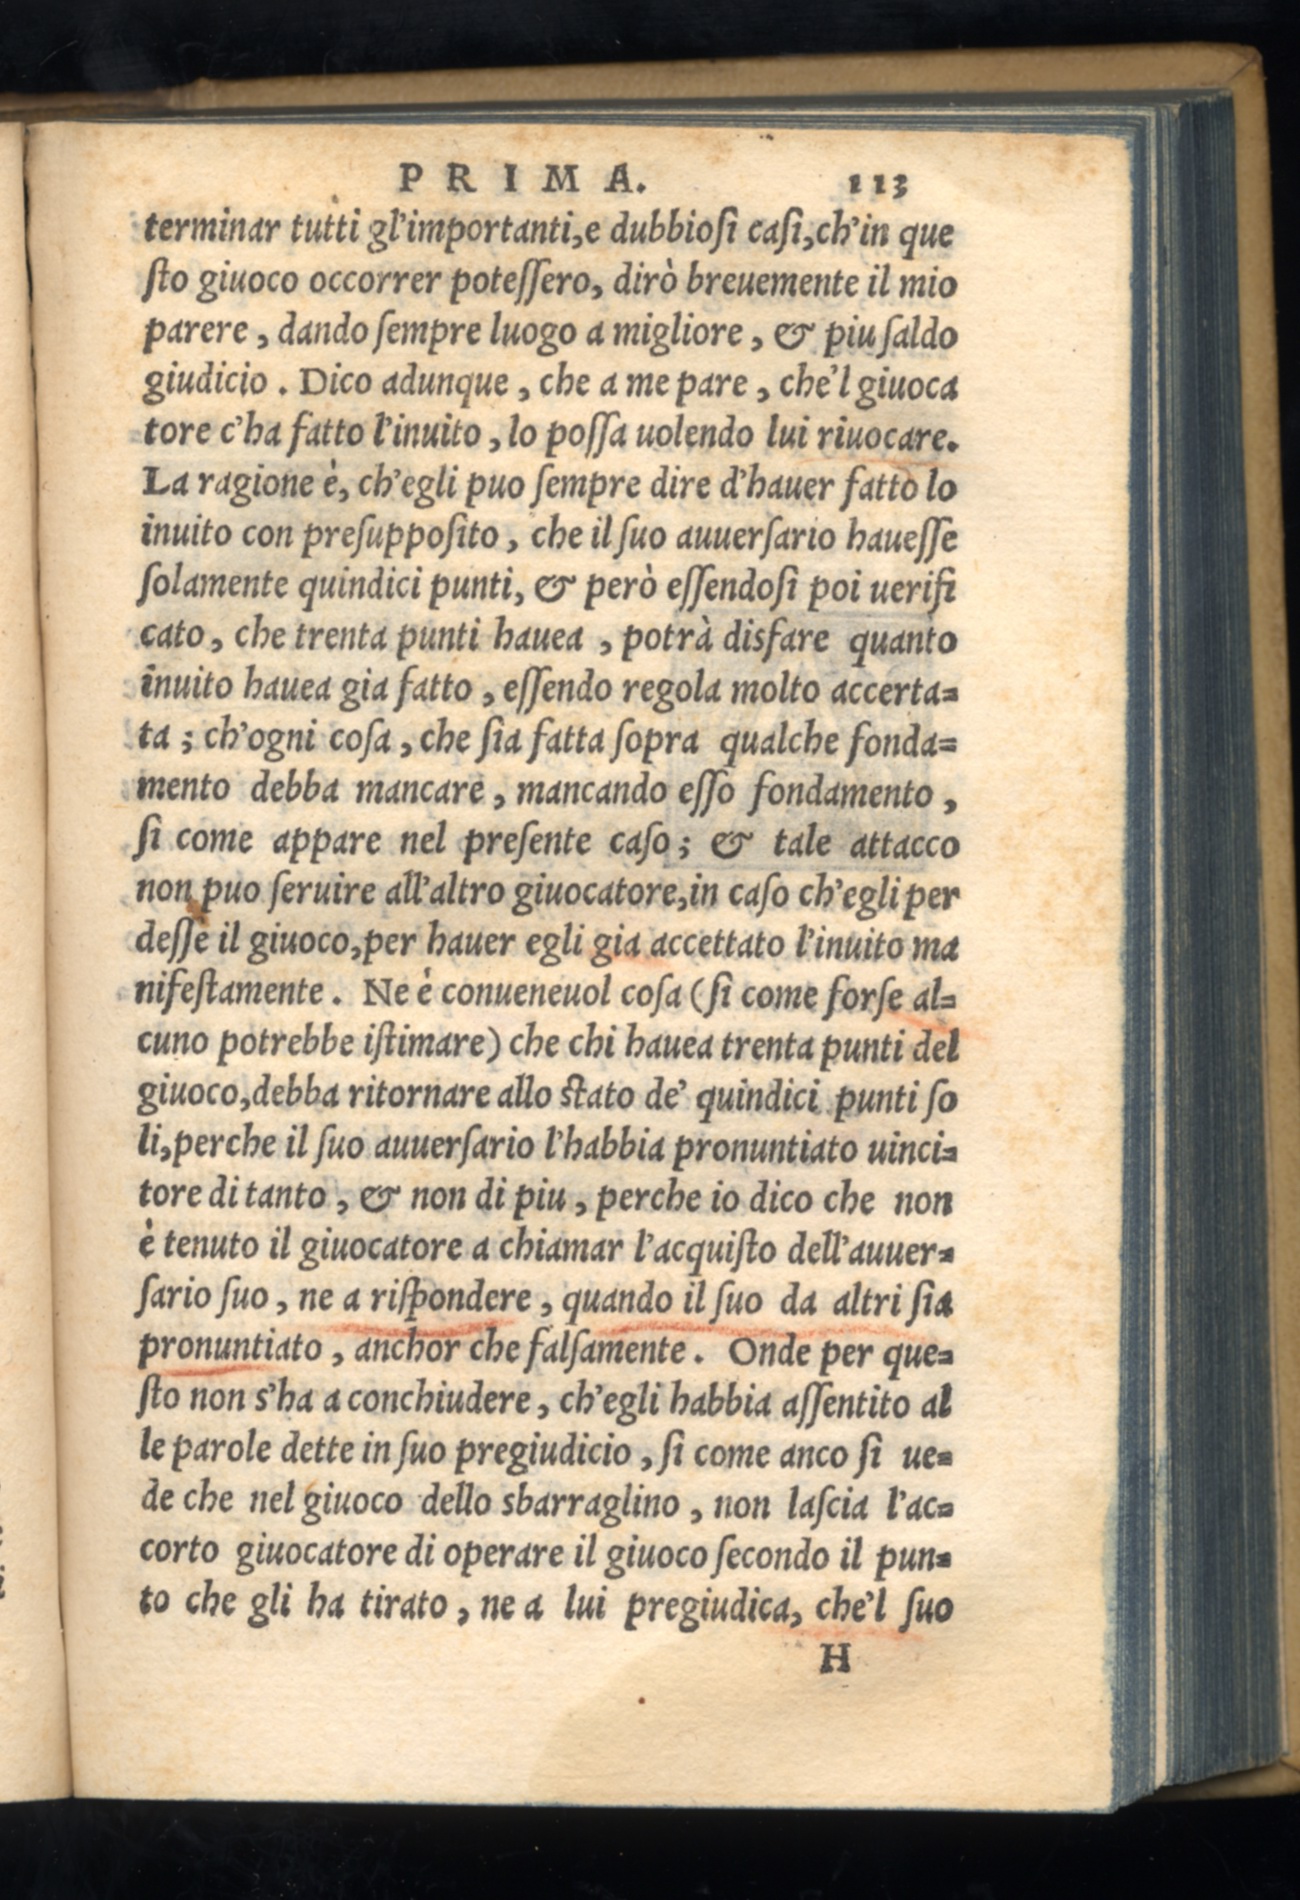 PRIMA. 113
terminar tutti gl'importanti,e dubbiosi casi,ch'in que
sto giuoco occorrer potessero, dirò breuemente il mio
parere, dando sempre luogo a migliore, & piu saldo
giudicio. Dico adunque, che a me pare, che'l giuoca
tore c'ha fatto l'inuito, lo possa uolendo lui riuocare.
La ragione è, ch'egli puo sempre dire d'hauer fatto lo
inuito con presupposito, che il suo auuersario hauesse
solamente quindici punti, & però essendosi poi uerifi
cato, che trenta punti hauea, potrà disfare quanto
inuito hauea gia fatto, essendo regola molto accerta=
ta; ch'ogni cosa, che sia fatta sopra qualche fonda=
mento debba mancare, mancando esso fondamento,
si come appare nel presente caso; & tale attacco
non puo seruire all'altro giuocatore,in caso ch'egli per
desse il giuoco,per hauer egli gia accettato l'inuito ma
nifestamente. Ne è conueneuol cosa (si come forse al=
cuno potrebbe istimare) che chi hauea trenta punti del
giuoco,debba ritornare allo stato de' quindici punti so
li,perche il suo auuersario l'habbia pronuntiato uinci=
tore di tanto, & non di piu, perche io dico che non
è tenuto il giuocatore a chiamar l'acquisto dell'auuer=
sario suo, ne a rispondere, quando il suo da altri sia
pronuntiato, anchor che falsamente. Onde per que=
sto non s'ha a conchiudere, ch'egli habbia assentito al
le parole dette in suo pregiudicio, si come anco si ue=
de che nel giuoco dello sbarraglino, non lascia l'ac=
corto giuocatore di operare il giuoco secondo il pun=
to che gli ha tirato, ne a lui pregiudica, che'l suo
H